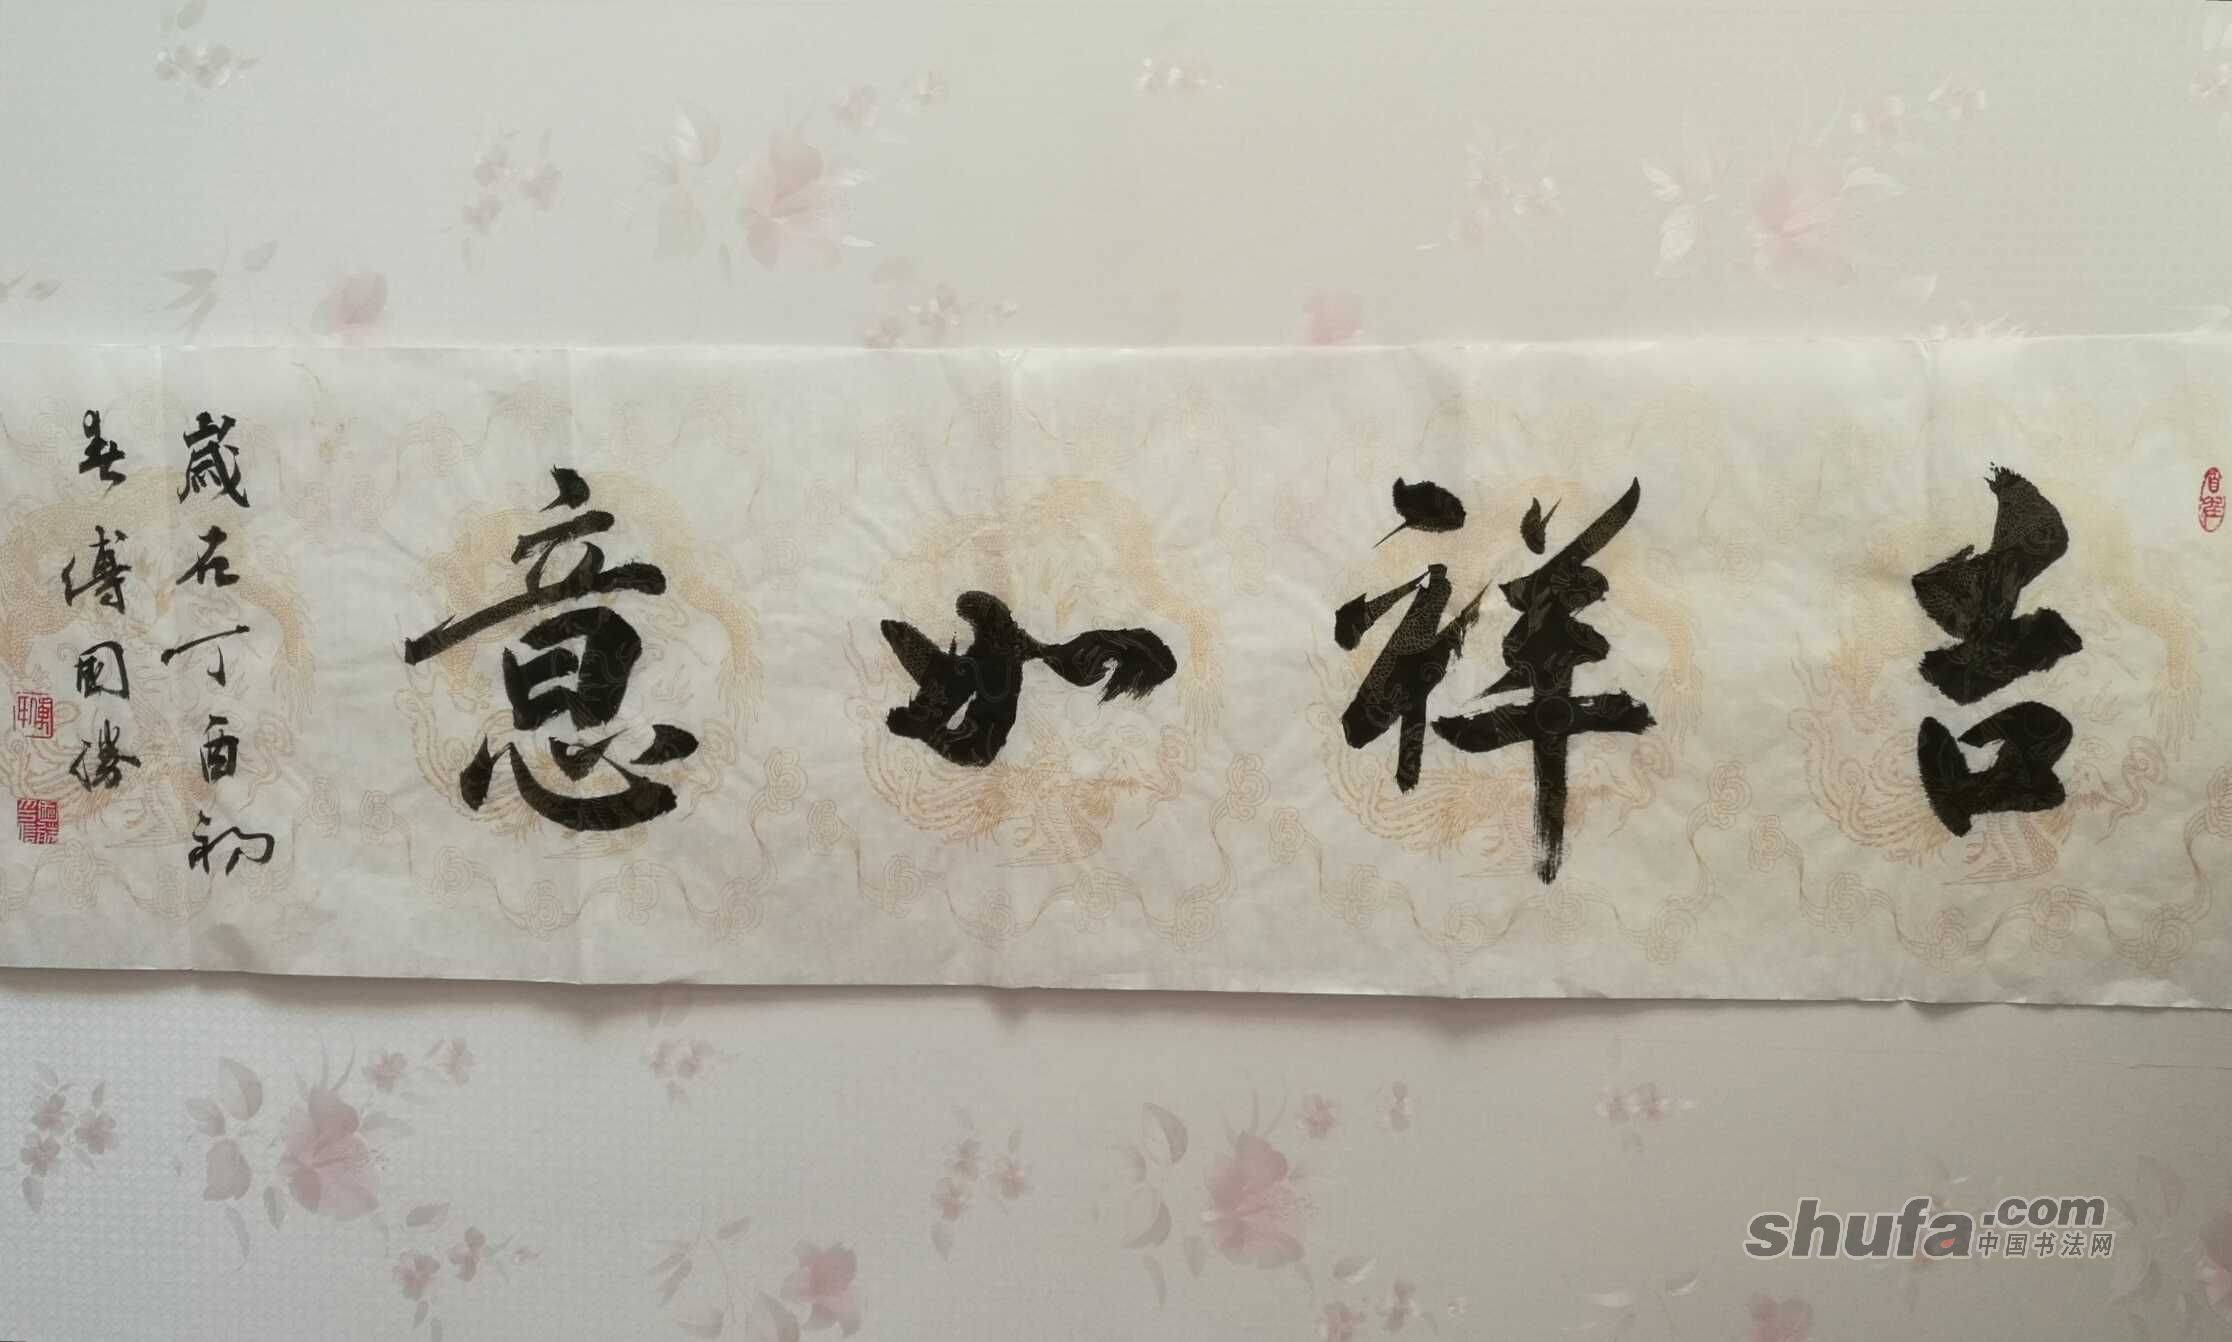 吉祥如意
歲在丁酉初
春傅國勝
shufa.com
中国书法网